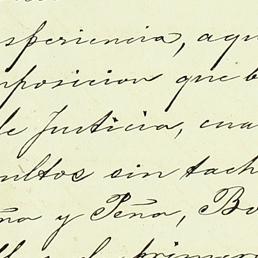 speriencia, aqu
posicion que
de Justicia, cua
ultos sin tach
ña y Peña, Bo
el primer